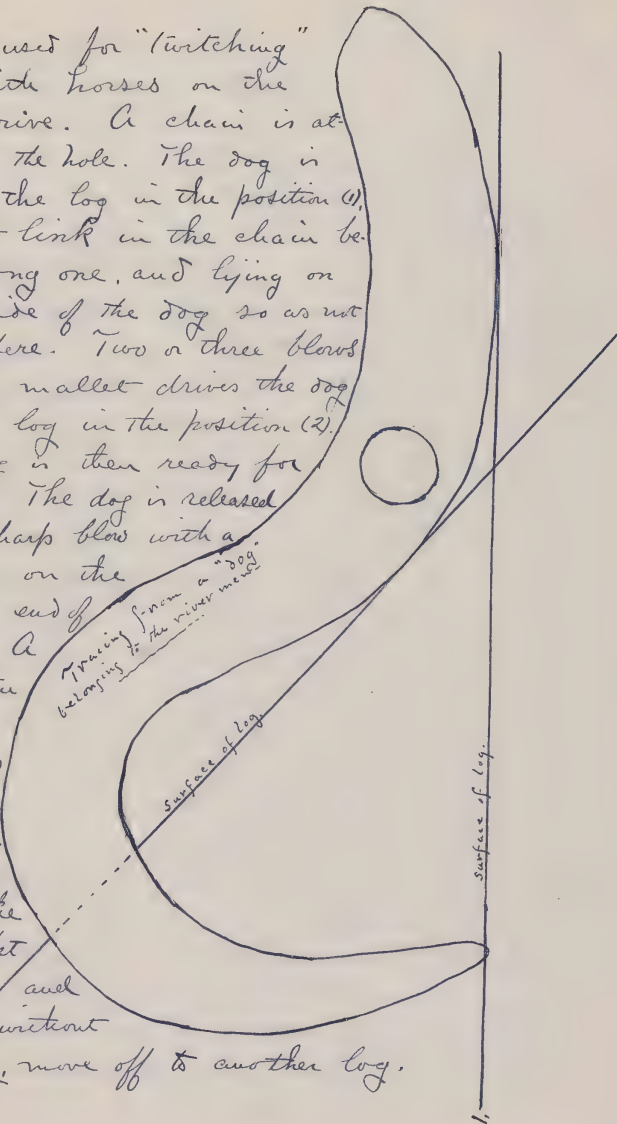 used for "twitching"
ith horses on the
rive. A chain is at-
the hole. The dog is
the log in the position (1),
link in the chain be-
ng one, and lying on
ide of the dog so as not
ere. Two or three blows
mallet drives the dog
log in the position (2).
is then ready for
The dog is released
harp blow with a
on the
end of
A
Tracing from a "dog"
belonging to the river men
surface of log.
surface of log.
ke
st
and
without
move off to another log.
1.